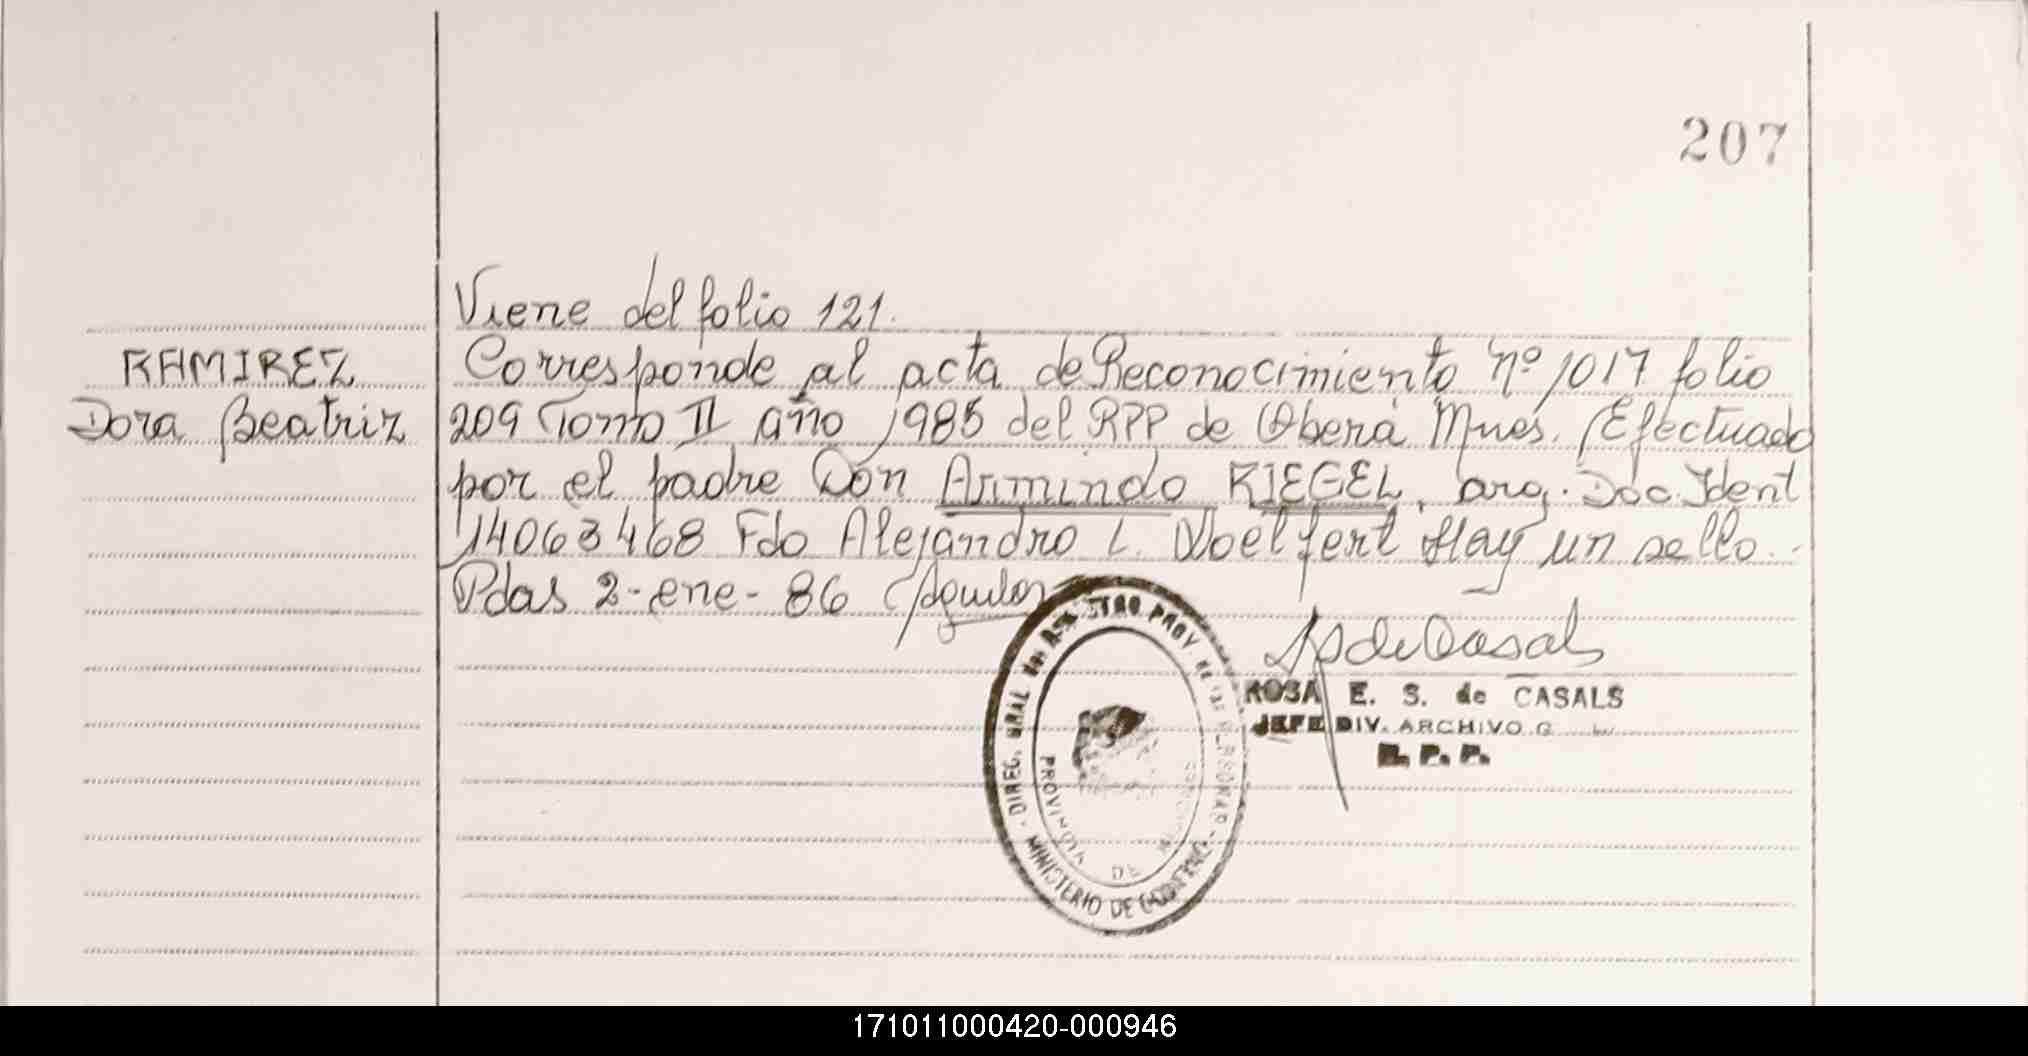 207
Viene del folio 121.
RAMIREZ
Dora Beatriz
Corresponde al acta de Reconocimiento nº 1017 folio
209 Tomo II año 1985 del RPP de Oberá Mnes. Efectuado
por el padre Don Armindo RIEGEL, arg. Doc. Ident
14063468 Fdo Alejandro L. Woelfert Hay un sello.
Pdas 2-ene-86 Aguilar
ROSA E. S. de CASALS
JEFE DIV. ARCHIVO G
R. P. P.
DIREC. GRAL REGISTRO PROV. de las PERSONAS
PROVINCIA DE MISIONES
MINISTERIO DE GOBIERNO
171011000420-000946